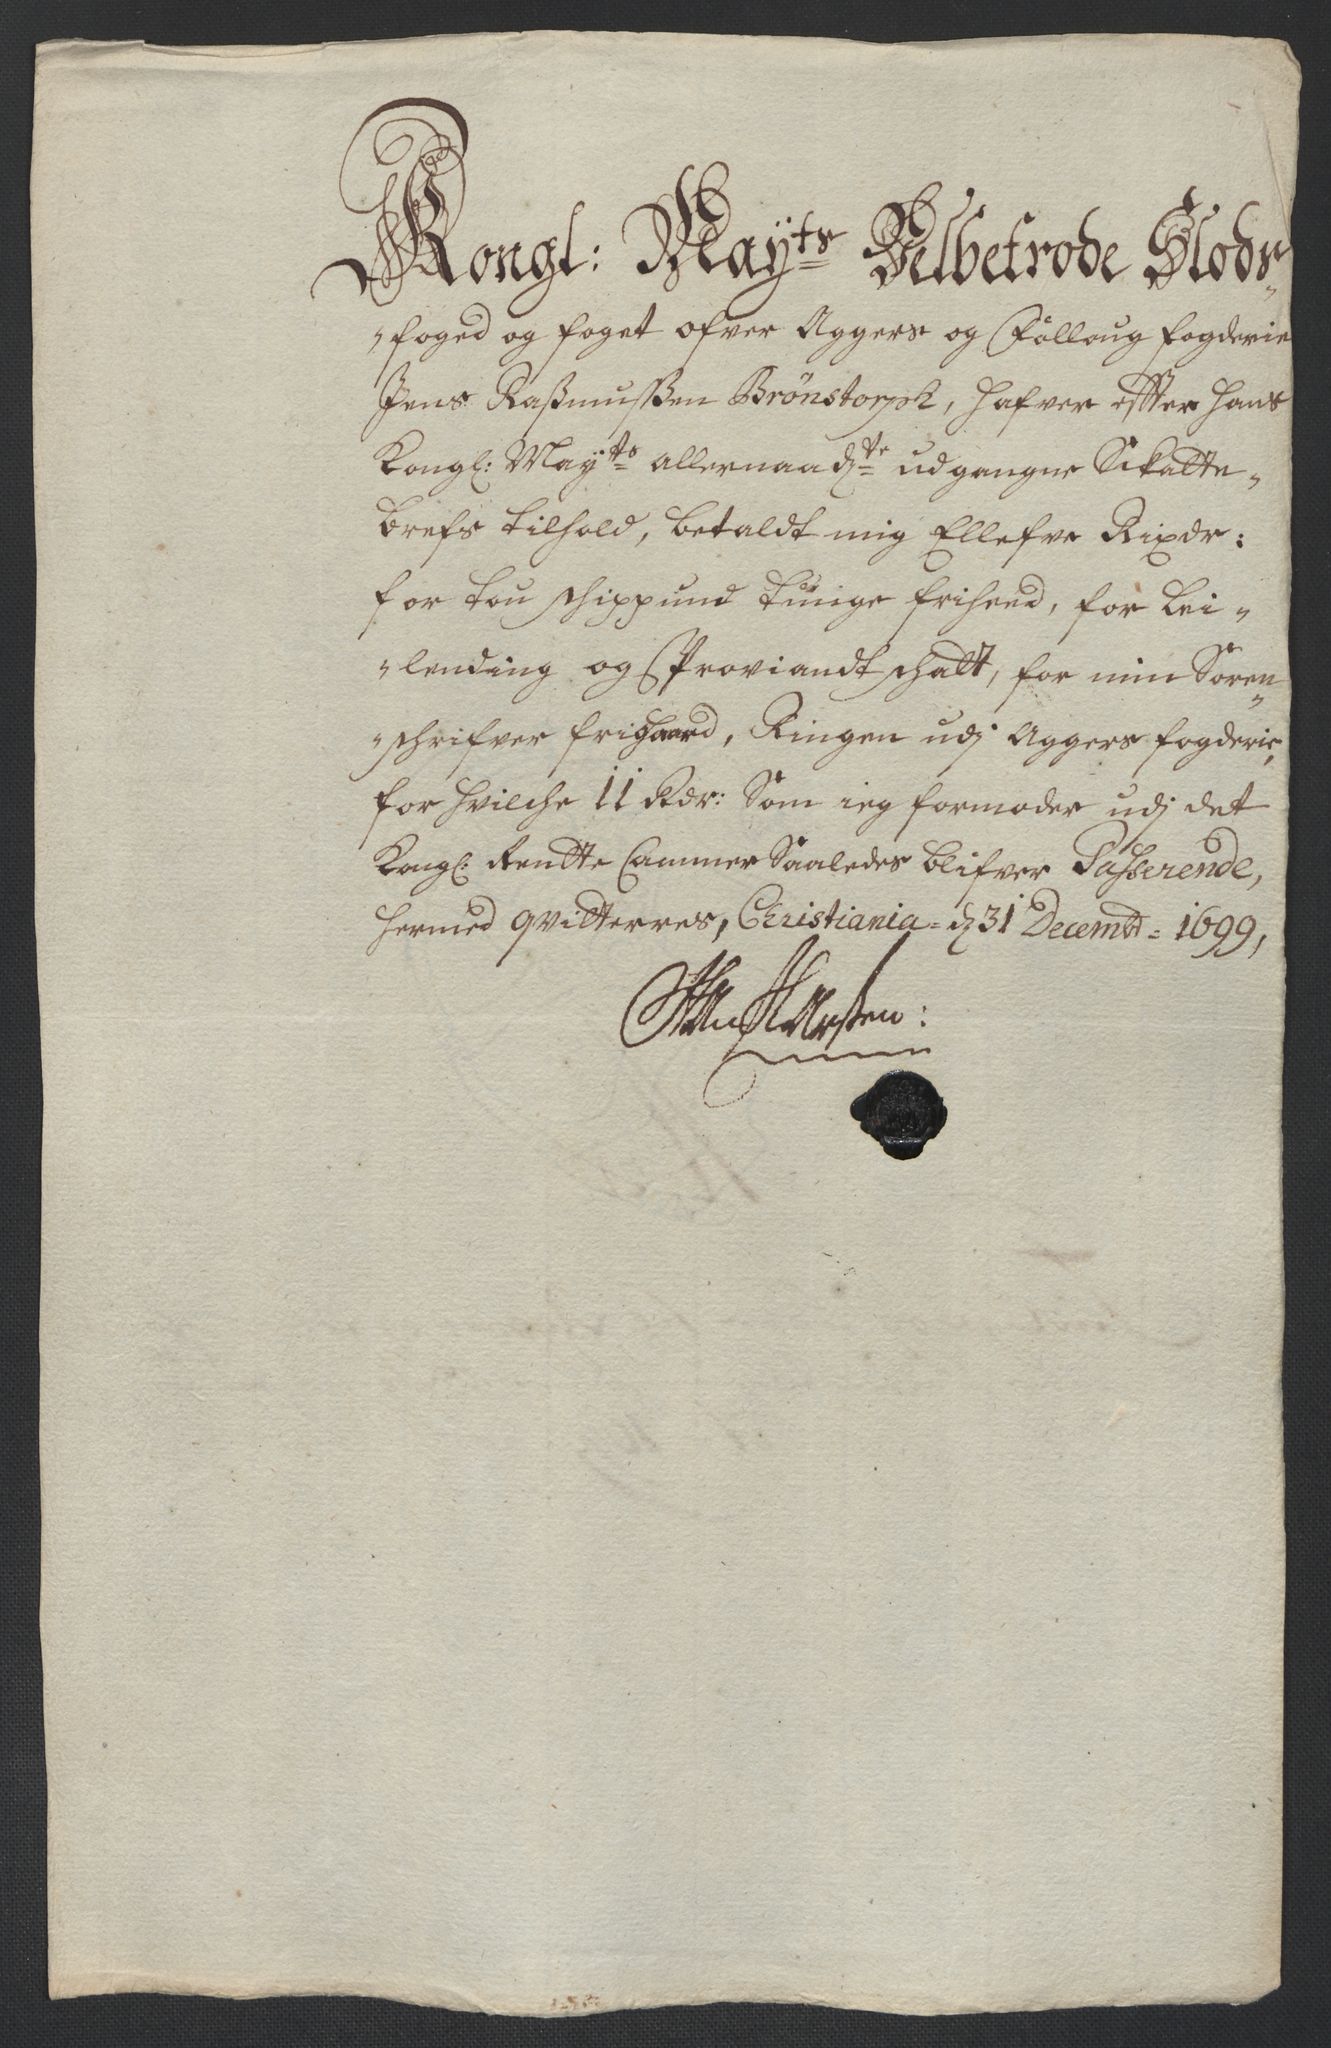 Kongl: Maÿts Velbetrode Slods-
-foged og foget ofver Aggers og Follaug fogderie
Jens Raßmußen Brønstorph, hafver effter hans
Kongl: Maÿts allernaadste udgangne Skatte-
brefs tilhold, betaldt mig Ellefve Rixdr:
for tou schippund tunge friheed, for Lei-
-lending og Proviandt schatt, for min Soren-
-schrifver frigaard, Ringen udj Aggers fogderie,
for hvilche 11 Rdr: Som ieg formoder udj det
Kongl: Rentte Cammer Saaledes blifver Passerende,
hermed qvitterres, Christiania - d 31 Decembr - 1699,